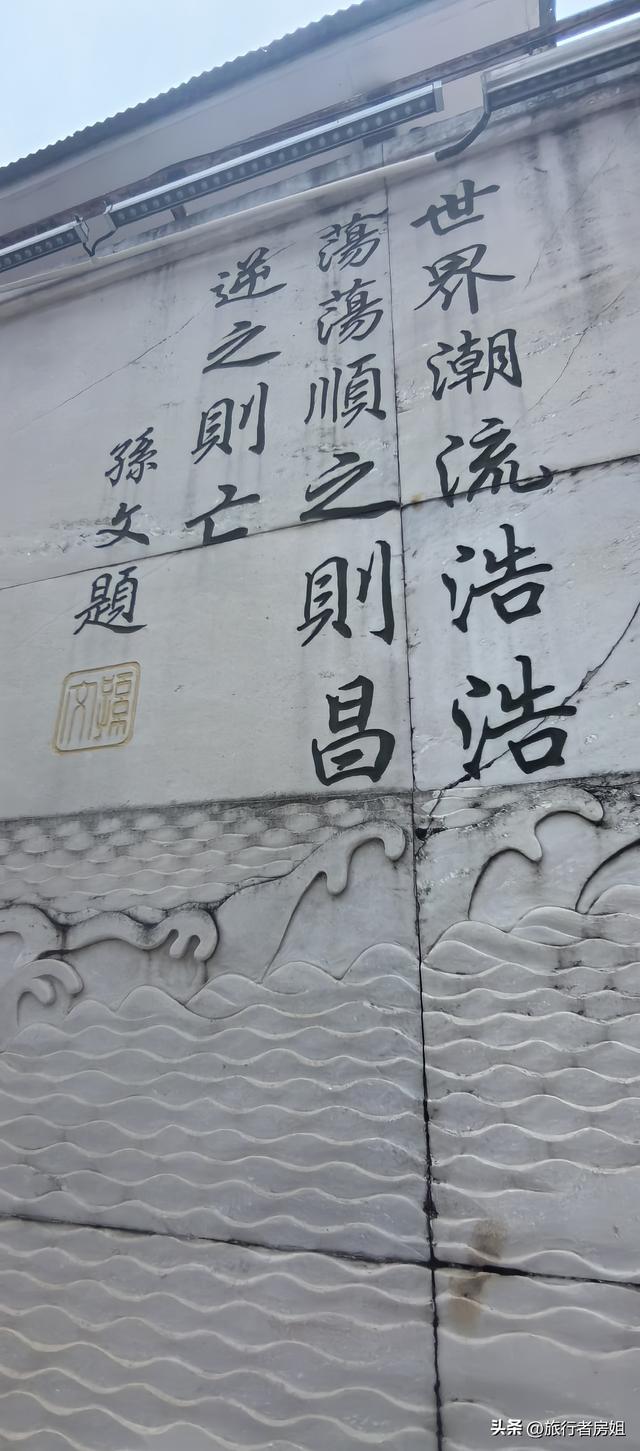 世界潮流浩浩
蕩蕩順之則昌
逆之則亡
孫文題
孫文
头条 @旅行者房姐